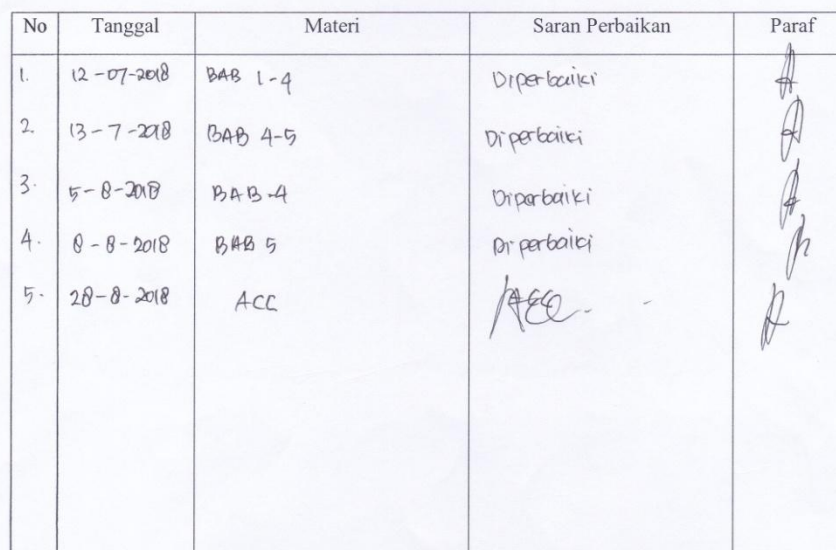 No Tanggal Materi Saran Perbaikan Paraf
1. 12-07-2018 BAB 1-4 Diperbaiki
2. 13-7-2018 BAB 4-5 Diperbaiki
3. 5-8-2018 BAB-4 Diperbaiki
4. 8-8-2018 BAB 5 Diperbaiki
5. 28-8-2018 ACC ACC.-